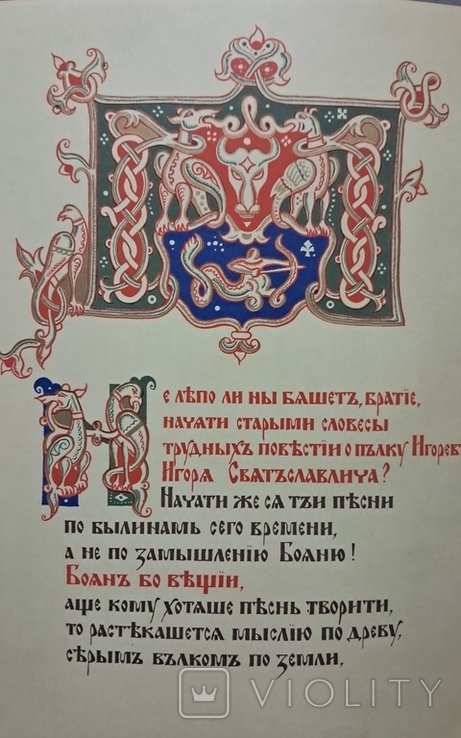 Не лѣпо ли ны бяшетъ, братіе,
начяти старыми словесы
трудныхъ повѣстіи о пълку Игорев
Игоря Святъславлича?
Начати же ся тъи пѣсни
по былинамь сего времени,
а не по замышленію Бояню!
Боянъ бо вѣщіи,
аще кому хотяше пѣснь творити,
то растѣкашется мыслію по древу,
сѣрымъ вълкомъ по земли,
VIOLITY